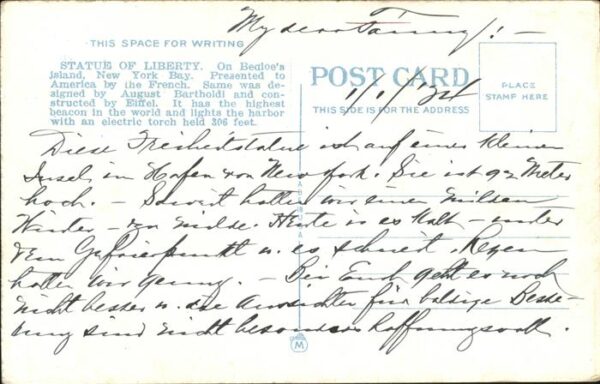 My dear Fanny! -
THIS SPACE FOR WRITING
STATUE OF LIBERTY. On Bedloe's
Island, New York Bay. Presented to
America by the French. Same was de-
signed by August Bartholdi and con-
structed by Eiffel. It has the highest
beacon in the world and lights the harbor
with an electric torch held 306 feet.
POST CARD
1/1/34
THIS SIDE IS FOR THE ADDRESS
PLACE
STAMP HERE
Diese Freiheitstatue ist auf einer kleinen
Insel, in Hafen von New York. Sie ist 92 Meter
hoch. - Soweit hatten wir einen milden
Winter - zu milde. Heute is es kalt - unter
dem Gefrierpunkt u. es schneit. Regen
hatten wir genug. - Bei Euch geht es noch
nicht besser u. die Aussichten für baldige Besse-
rung sind nicht besonders hoffnungsvoll.
M